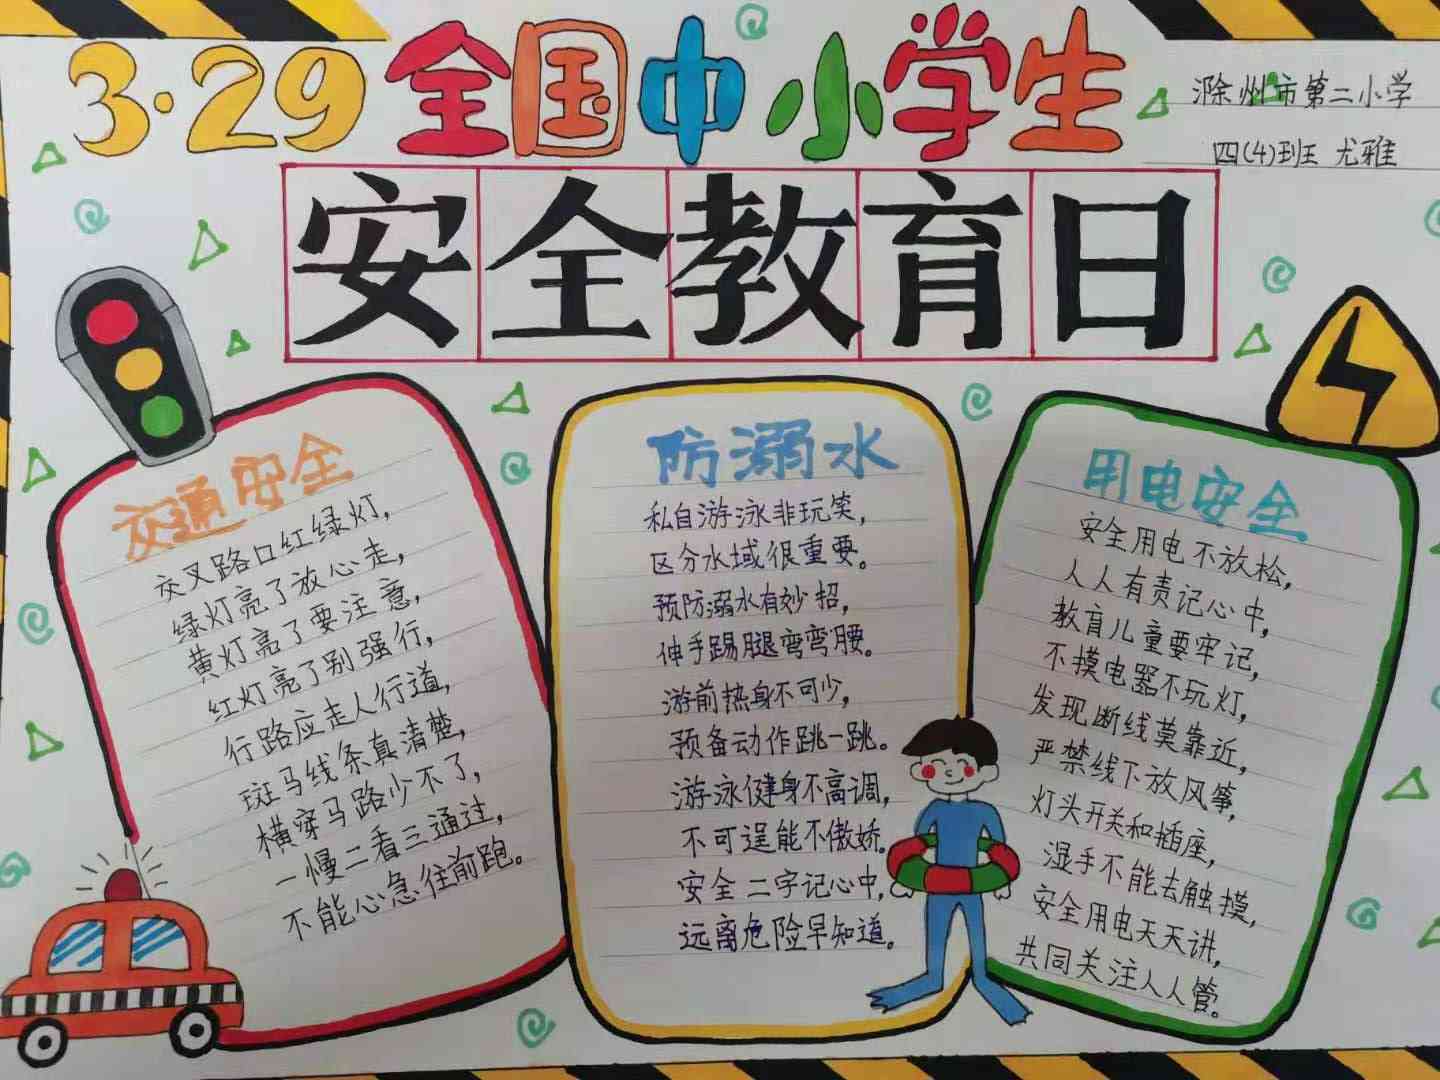 3·29全国中小学生
滁州市第二小学
四(4)班 尤雅
安全教育日
交通安全
交叉路口红绿灯,
绿灯亮了放心走,
黄灯亮了要注意,
红灯亮了别强行,
行路应走人行道,
斑马线条真清楚,
横穿马路少不了,
一慢二看三通过,
不能心急往前跑。
防溺水
私自游泳非玩笑,
区分水域很重要。
预防溺水有妙招,
伸手踢腿弯弯腰。
游前热身不可少,
预备动作跳一跳。
游泳健身不高调,
不可逞能不傲娇。
安全二字记心中,
远离危险早知道。
用电安全
安全用电不放松,
人人有责记心中,
教育儿童要牢记,
不摸电器不玩灯,
发现断线莫靠近,
严禁线下放风筝,
灯头开关和插座,
湿手不能去触摸,
安全用电天天讲,
共同关注人人管。